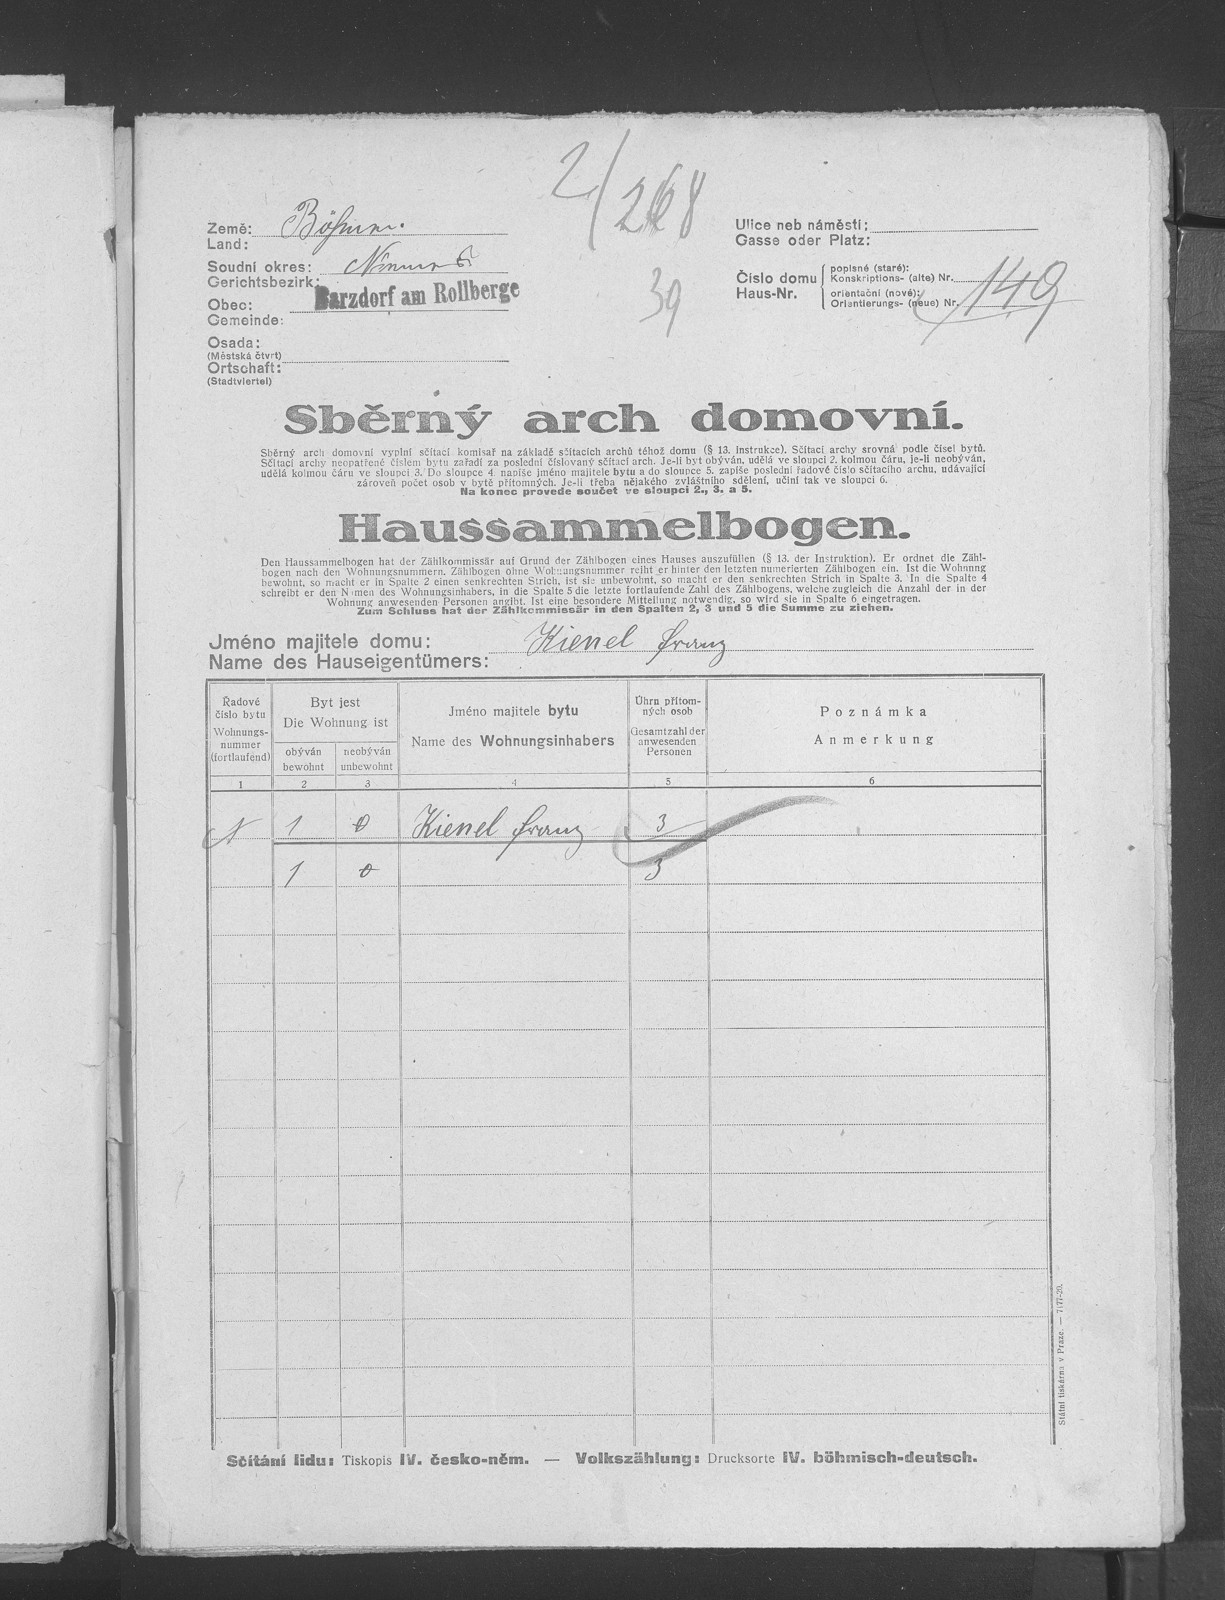 2/268
39
Země: Böhmen.
Land:
Soudní okres:
Gerichtsbezirk:
Obec: Barzdorf am Rollberge
Gemeinde:
Osada:
(Městská čtvrt)
Ortschaft:
(Stadtviertel)
Ulice neb náměstí:
Gasse oder Platz:
Číslo domu popisné (staré):
Konskriptions- (alte) Nr.
Haus-Nr. orientační (nové):
Orientierungs- (neue) Nr. 149
Sběrný arch domovní.
Sběrný arch domovní vyplní sčítací komisař na základě sčítacích archů téhož domu (§ 13. instrukce). Sčítací archy srovná podle čísel bytů.
Sčítací archy neopatřené číslem bytu zařadí za poslední číslovaný sčítací arch. Je-li byt obýván, udělá ve sloupci 2. kolmou čáru, je-li neobýván,
udělá kolmou čáru ve sloupci 3. Do sloupce 4. napíše jméno majitele bytu a do sloupce 5. zapíše poslední řadové číslo sčítacího archu, udávající
zároveň počet osob v bytě přítomných. Je-li třeba nějakého zvláštního sdělení, učiní tak ve sloupci 6.
Na konec provede součet ve sloupci 2., 3. a 5.
Haussammelbogen.
Den Haussammelbogen hat der Zählkommissär auf Grund der Zählbogen eines Hauses auszufüllen (§ 13. der Instruktion). Er ordnet die Zähl-
bogen nach den Wohnungsnummern. Zählbogen ohne Wohnungsnummer reiht er hinter den letzten numerierten Zählbogen ein. Ist die Wohnung
bewohnt, so macht er in Spalte 2 einen senkrechten Strich, ist sie unbewohnt, so macht er den senkrechten Strich in Spalte 3. In die Spalte 4
schreibt er den Namen des Wohnungsinhabers, in die Spalte 5 die letzte fortlaufende Zahl des Zählbogens, welche zugleich die Anzahl der in der
Wohnung anwesenden Personen angibt. Ist eine besondere Mitteilung notwendig, so wird sie in Spalte 6 eingetragen.
Zum Schluss hat der Zählkommissär in den Spalten 2, 3 und 5 die Summe zu ziehen.
Jméno majitele domu: Kienel Franz
Name des Hauseigentümers:
Řadové
číslo bytu
Wohnungs-
nummer
(fortlaufend)
Byt jest
Die Wohnung ist
obýván
bewohnt
neobýván
unbewohnt
Jméno majitele bytu
Name des Wohnungsinhabers
Úhrn přítom-
ných osob
Gesamtzahl der
anwesenden
Personen
Poznámka
Anmerkung
1 2 3 4 5 6
1 0 Kienel Franz 3
1 0 3
Sčítání lidu: Tiskopis IV. česko-něm. — Volkszählung: Drucksorte IV. böhmisch-deutsch.
Státní tiskárna v Praze. — 7177-20.